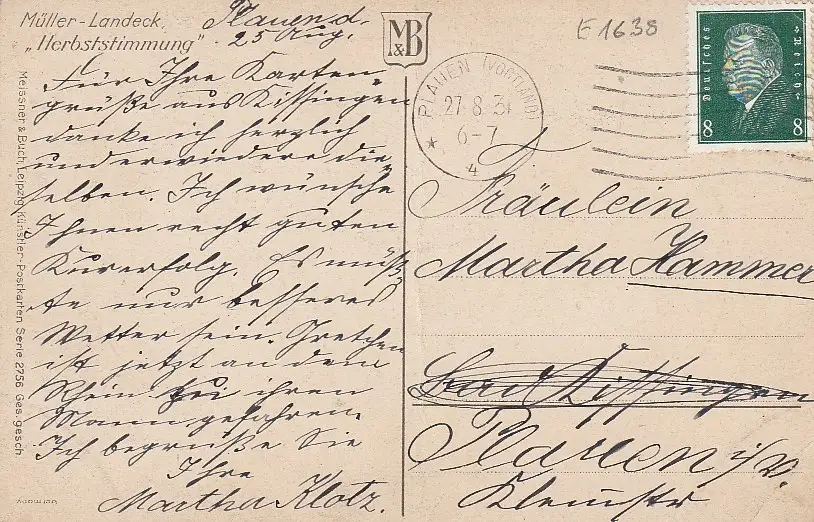 Müller-Landeck,
„Herbststimmung"
Plauen d.
25 Aug.
Für Ihre Karten-
grüße aus Kissingen
danke ich herzlich
und erwiedere die-
selben. Ich wünsche
Ihnen recht guten
Kurerfolg. Es müß-
te nur besseres
Wetter sein. Gretchen
ist jetzt an dem
Rhein zu ihrem
Mann gefahren.
Ich begrüße Sie
Ihre
Martha Klotz.
Meissner & Buch, Leipzig, Künstler-Postkarten Serie 2756 Ges. gesch.
M&B
E1638
PLAUEN (VOGTLAND)
27.8.31
6-7
4
Deutsches Reich
8 8
Fräulein
Martha Hammer
Bad Kissingen
Plauen i/V.
Klemstr